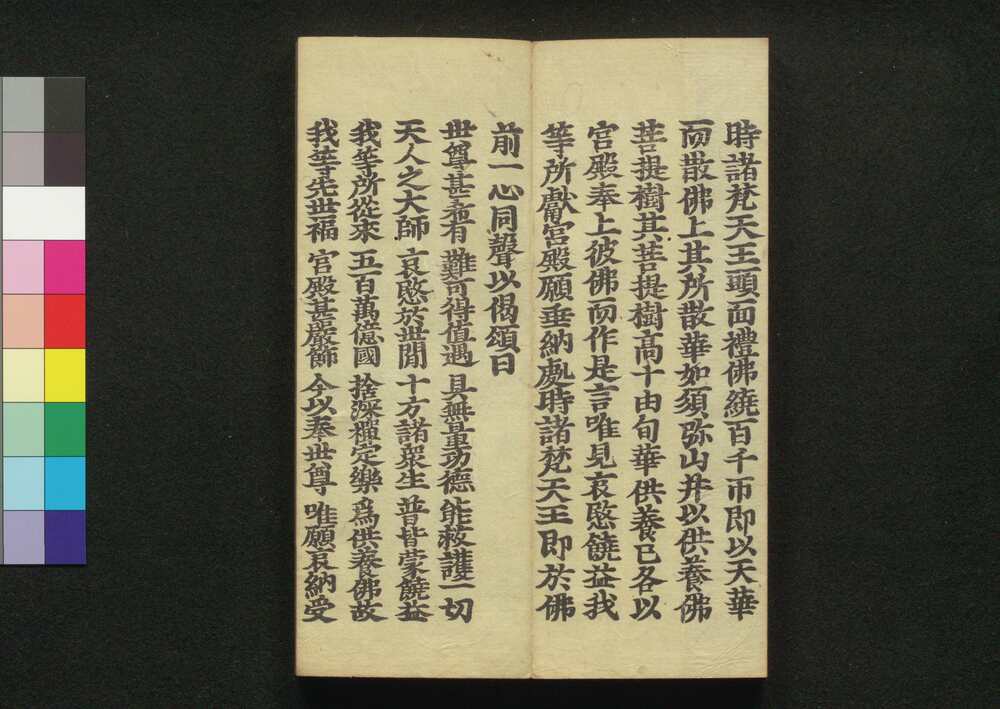 時諸梵天王頭面禮佛繞百千帀即以天華
而散佛上其所散華如須弥山并以供養佛
菩提樹其菩提樹高十由旬華供養已各以
宮殿奉上彼佛而作是言唯見哀愍饒益我
等所獻宮殿願垂納處時諸梵天王即於佛
前一心同聲以偈頌曰
世尊甚希有 難可得值遇 具無量功德 能救護一切
天人之大師 哀愍於世閒 十方諸衆生 普皆蒙饒益
我等所從來 五百萬億國 捨深禪定樂 爲供養佛故
我等先世福 宮殿甚嚴飾 今以奉世尊 唯願哀納受